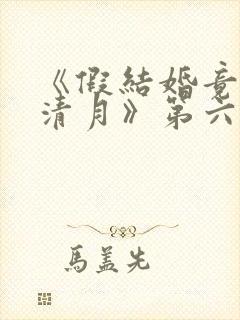 《假結婚竟
清月》第六
馬盖先